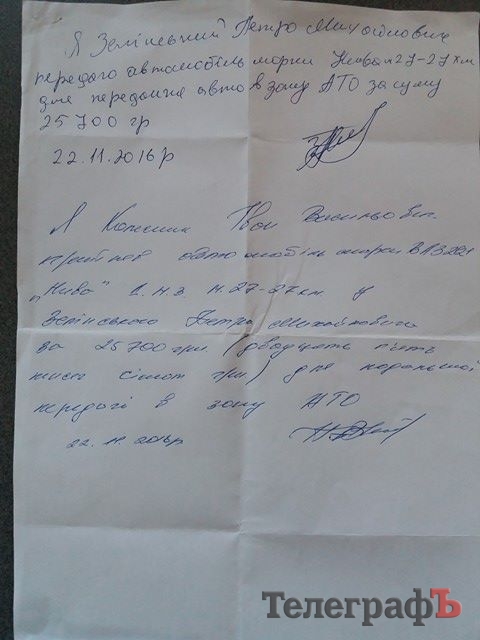 Я Зелінський Петро Михайлович
передаю автомобіль марки Нива н 27-27 км
для передачі авто в зону АТО за суму
25700 гр
22.11.2016р
Я Колесник Іван Васильович
прийняв автомобіль марки ВАЗ 2121
"Нива" д.н.з. н.27-27км. у
Зелінського Петра Михайловича
за 25700 грн. (двадцять п'ять
тисяч сімсот грн.) для подальшої
передачі в зону АТО
22.11.2016р
ТелеграфЪ